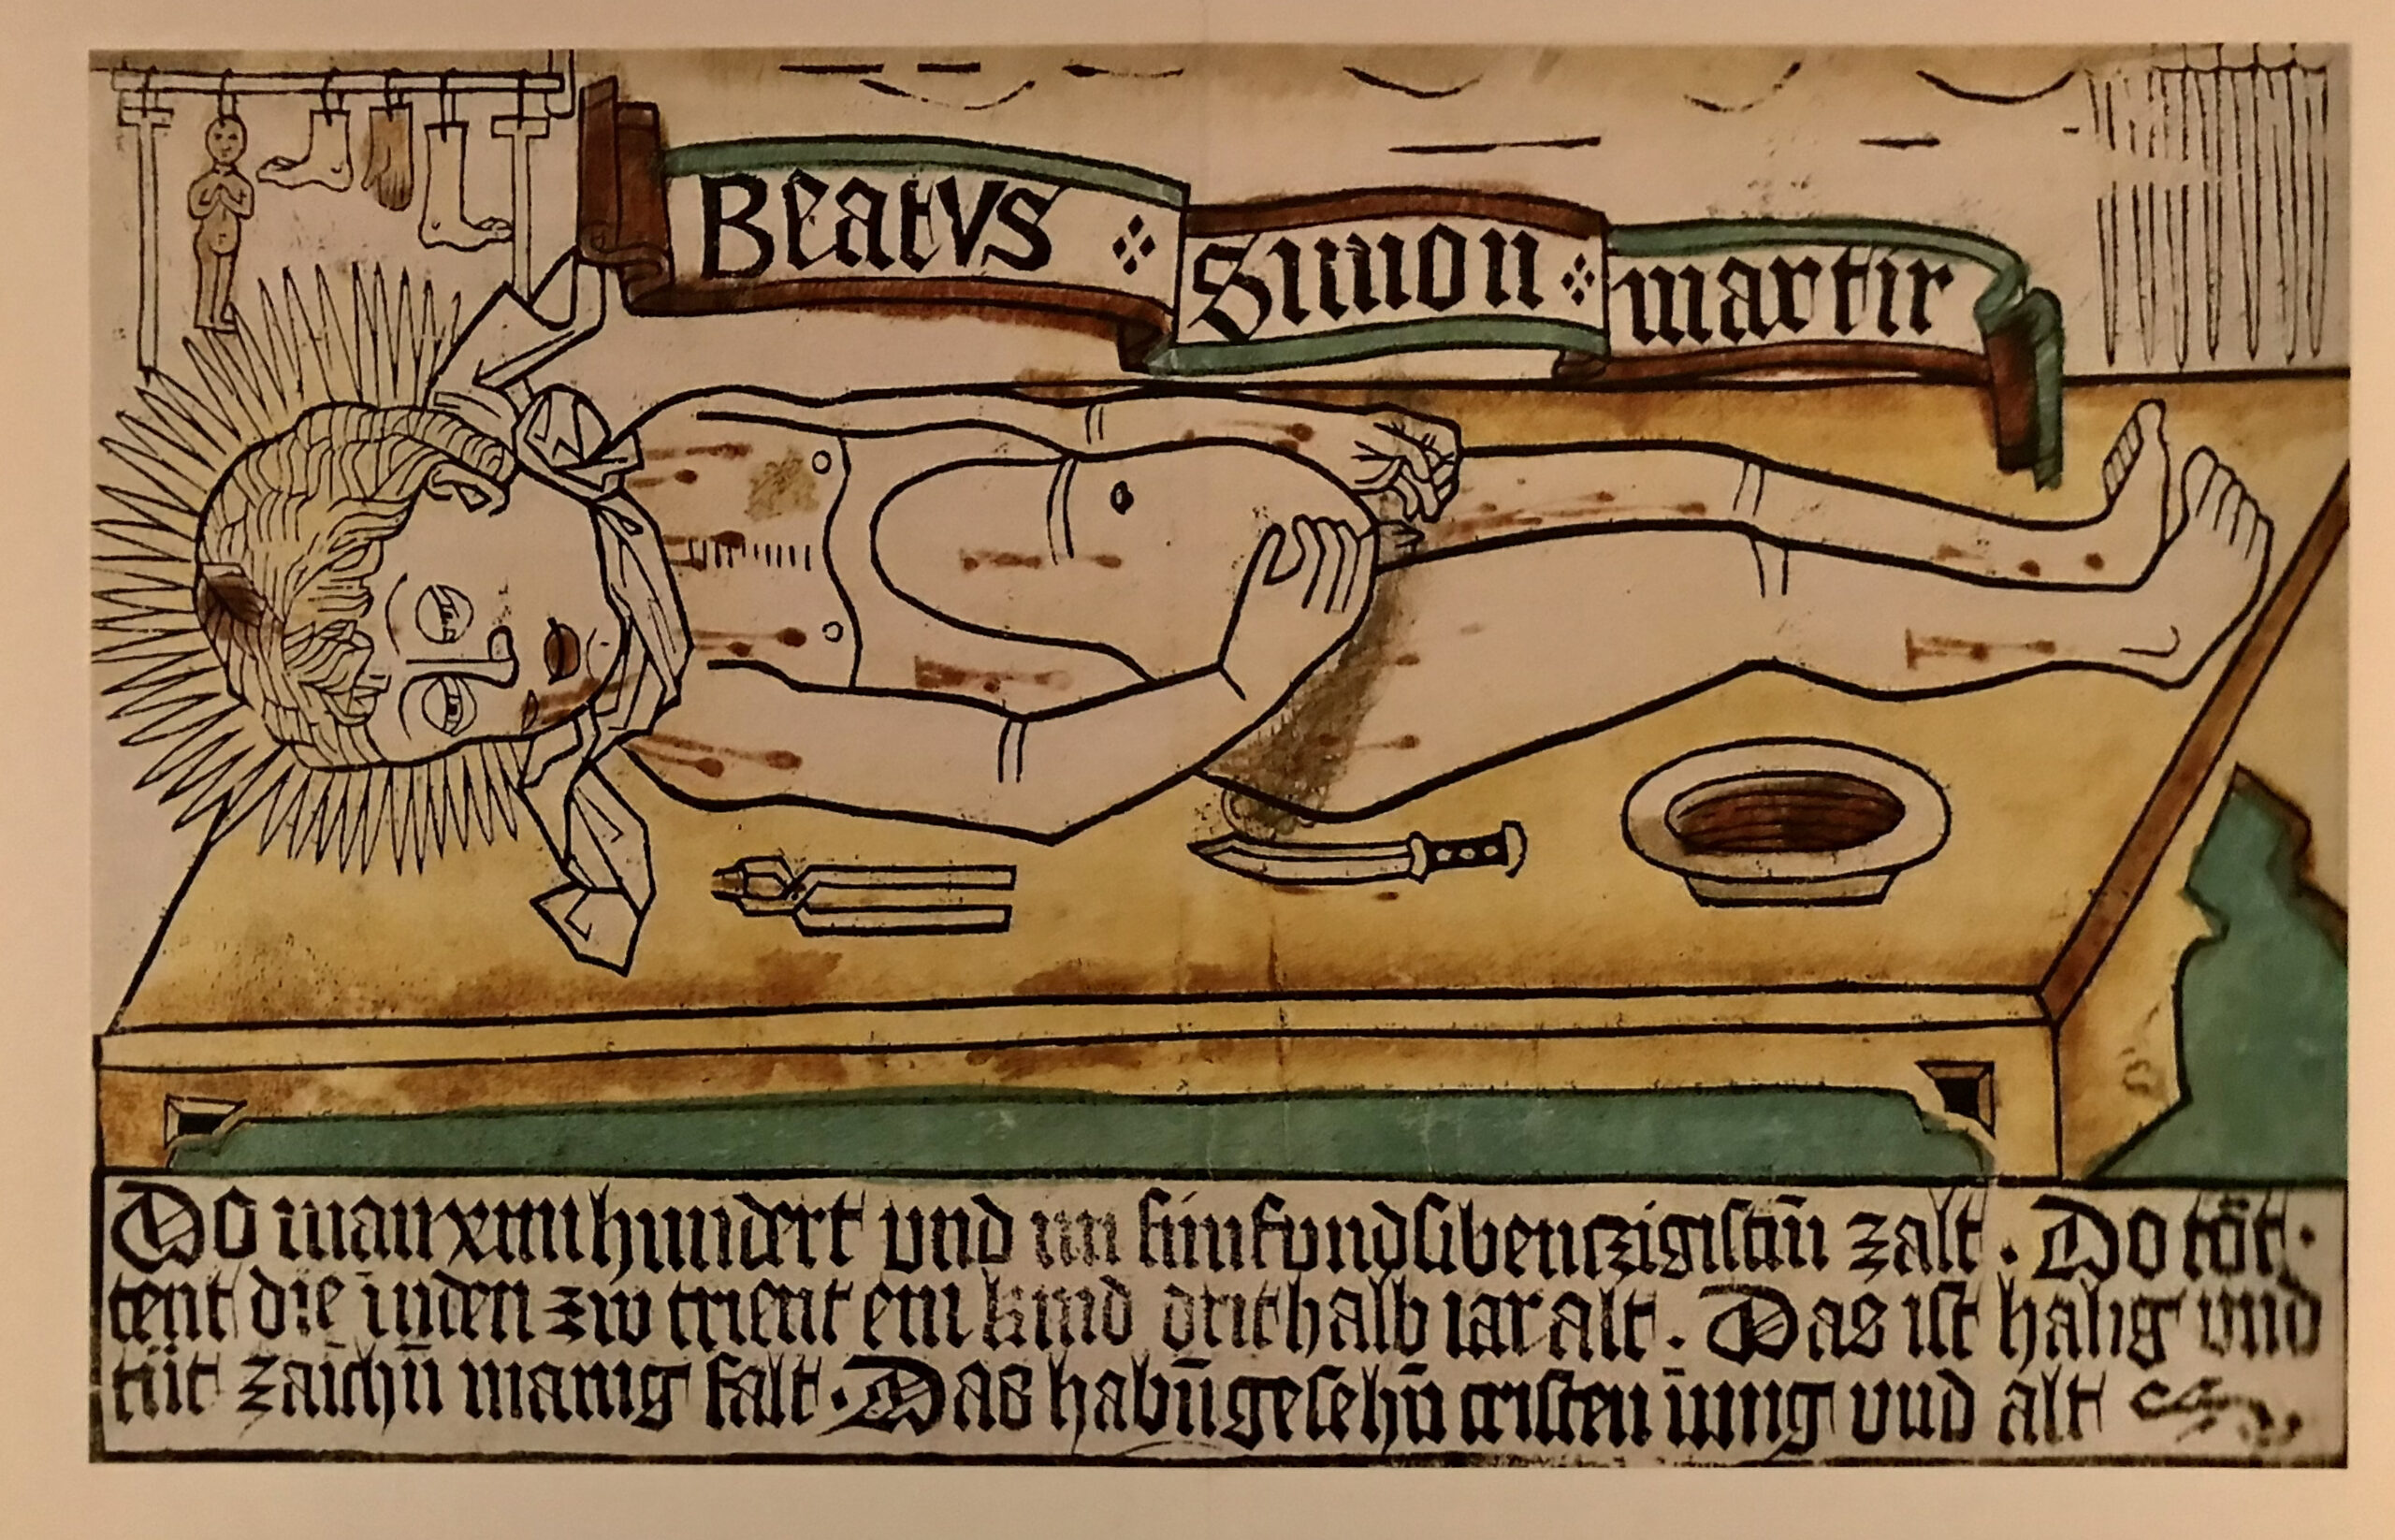 Beatvs Simon martir
Do man xiiii hundert vnd im fünfvndsibenczigistñ zalt. Do töt-
tent die iuden zw trient ein kind drithalb iar alt. Das ist halig vnd
tüt zaichñ manig falt. Das habñ gesehñ cristen iung vnd alt